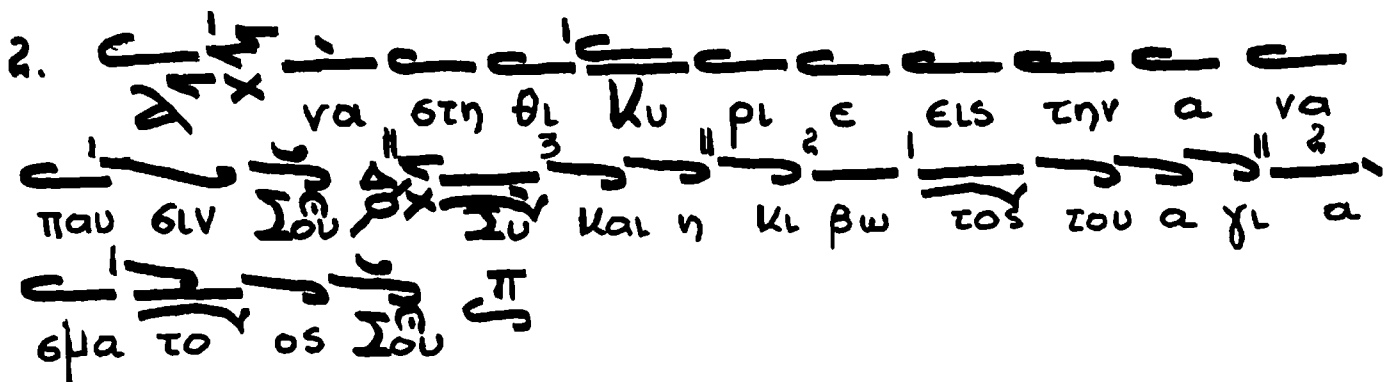 2. Ἀ να στη θι Κυ ρι ε εις την α να
παυ σιν Σου Συ και η κι βω τος του α γι α
σμα το ος Σου